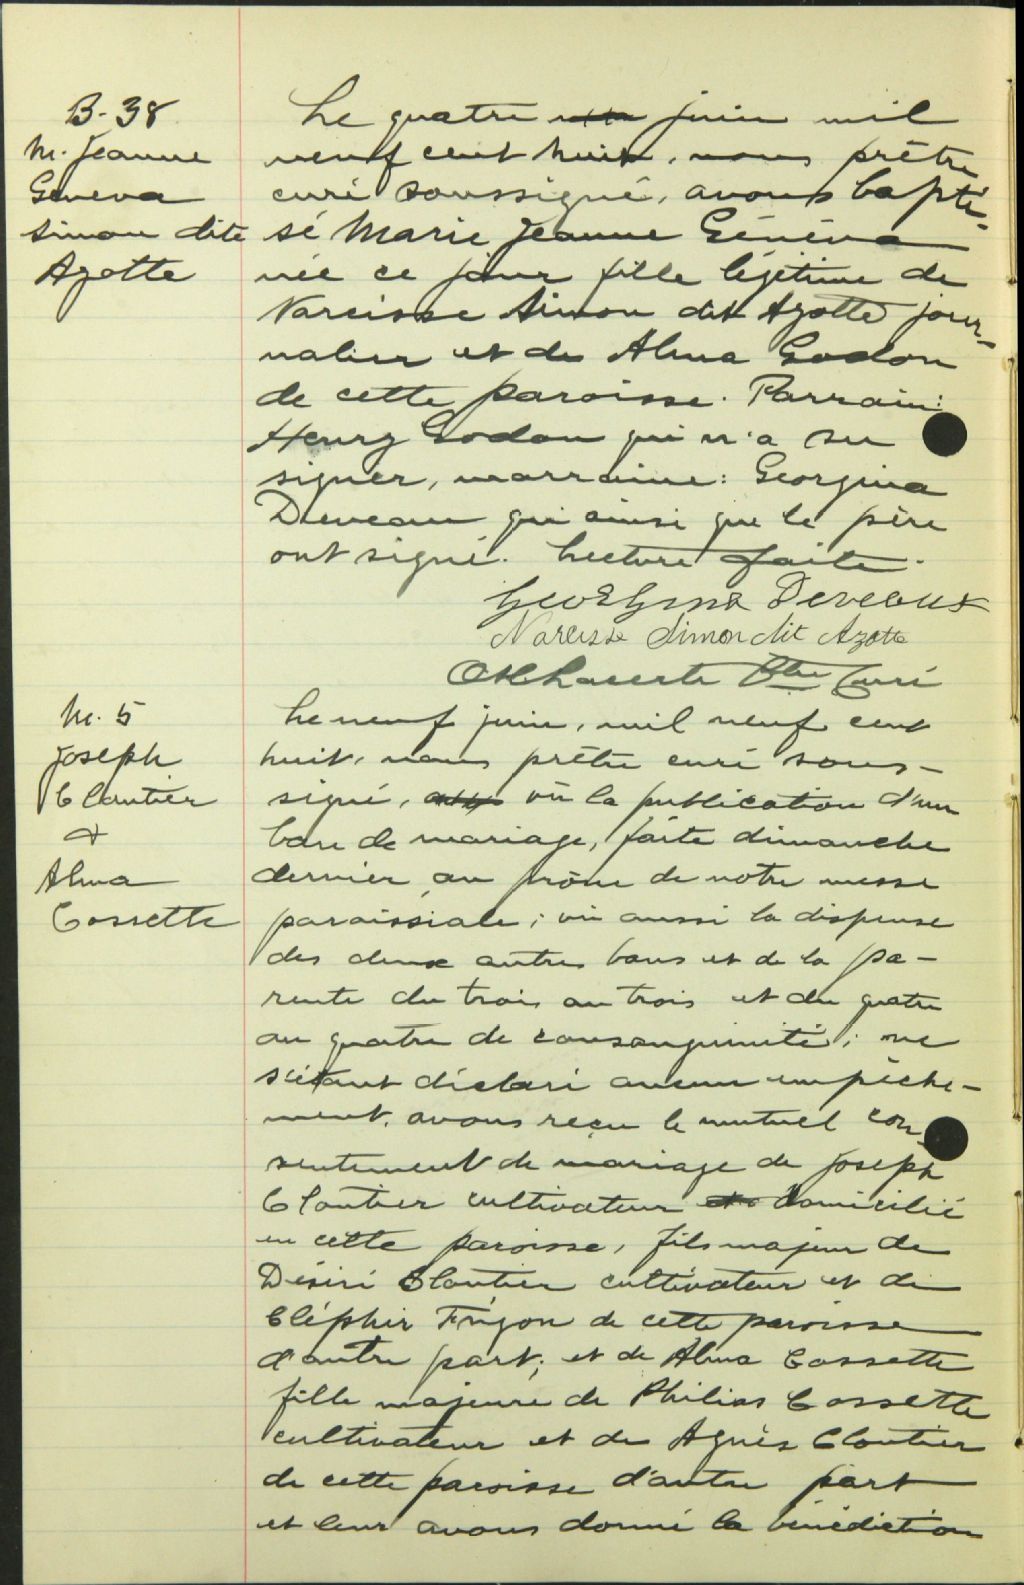 B-38
M. Jeanne
Geneva
Simon dite
Azotte
Le quatre juin mil
neuf cent huit, nous prêtre
curé soussigné, avons bapti-
sé Marie Jeanne Généva
née ce jour fille légitime de
Narcisse Simon dit Azotte jour-
nalier et de Alma Godon
de cette paroisse. Parrain:
Henry Godon qui n'a su
signer, marraine: Georgina
Deveau qui ainsi que le père
ont signé. Lecture faite.
Georgina Deveaux
Narcisse Simon dit Azotte
Ptre Curé
M. 5
Joseph
Cloutier
&
Alma
Cossette
Le neuf juin, mil neuf cent
huit, nous prêtre curé sous-
signé, vû la publication d'un
ban de mariage, faite dimanche
dernier au prône de notre messe
paroissiale; vû aussi la dispense
des deux autres bans et de la pa-
renté du trois au trois et du quatre
au quatre de consanguinité; ne
s'étant déclaré aucun empêche-
ment, avons reçu le mutuel con-
sentement de mariage de Joseph
Cloutier cultivateur domicilié
en cette paroisse, fils majeur de
Désiré Cloutier cultivateur et de
Cléphir Frigon de cette paroisse
d'autre part; et de Alma Cossette
fille majeure de Philias Cossette
cultivateur et de Agnès Cloutier
de cette paroisse d'autre part
et leur avons donné la bénédiction